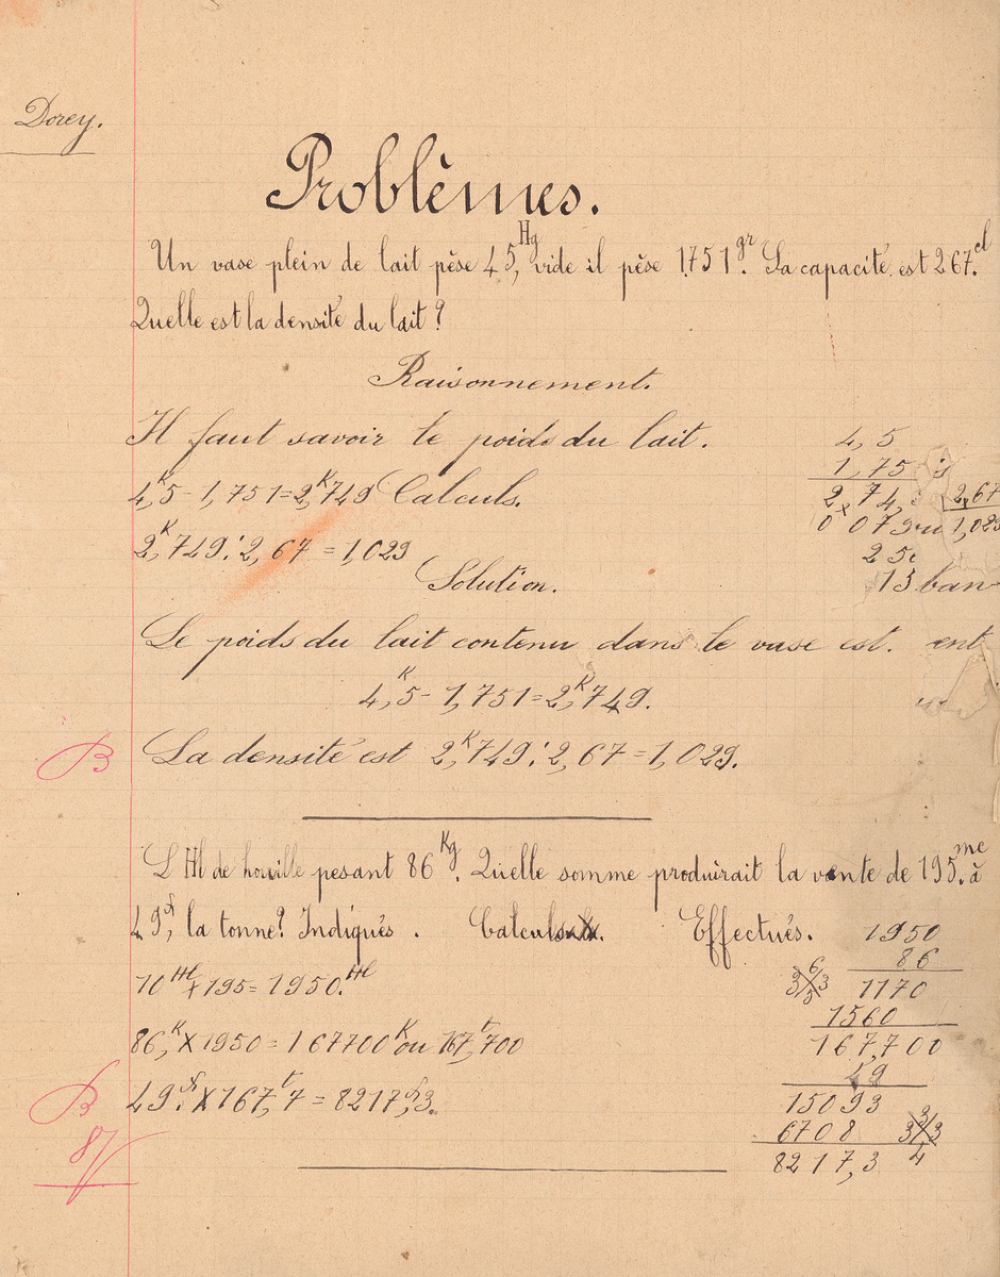 Dorey.
Problèmes.
Un vase plein de lait pèse 45,Hg vide il pèse 1751gr. Sa capacité est 267.cl
Quelle est la densité du lait ?
Raisonnement.
Il faut savoir le poids du lait.
4,K5 - 1,751 = 2,K749 Calculs.
2,K749 : 2,67 = 1,029
4,5
1,75
2,74 2,67
0 079 1,029
25
13
Solution.
Le poids du lait contenu dans le vase est.
4,K5 - 1,751 = 2,K749.
B La densité est 2,K749 : 2,67 = 1,029.
L'Hl de houille pesant 86Kg. Quelle somme produirait la vente de 195.mc à
49f, la tonne? Indiqués. Calculs. Effectués.
10Hl × 195 = 1950.Hl
86,K × 1950 = 167700K ou 167,t700
B 49f. × 167,t7 = 8217,f3.
8/
1950
86
1170
1560
167,700
49
15093
6708
8217,3
6
3 3
3
3
3 3
4